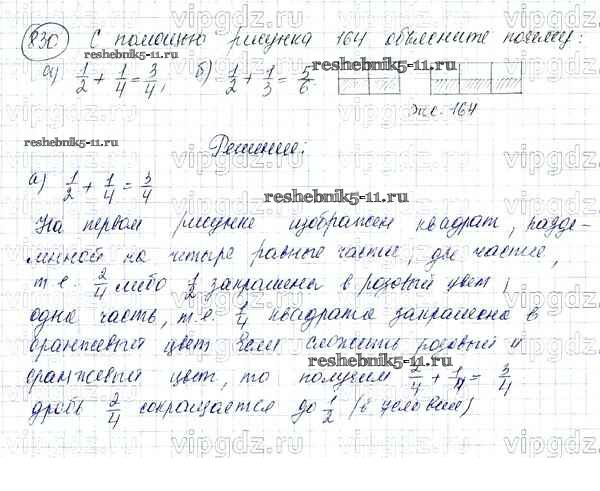 830 С помощью рисунка 164 объясните почему:
а) 1/2 + 1/4 = 3/4, б) 1/2 + 1/3 = 5/6
рис. 164
Решение:
а) 1/2 + 1/4 = 3/4
На первом рисунке изображен квадрат, разде-
ленной на четыре равные части, две части,
т.е. 2/4 либо 1/2 закрашены в розовый цвет,
одна часть, т.е. 1/4 квадрата закрашена в
оранжевый цвет Если сложить розовый и
оранжевый цвет, то получим 2/4 + 1/4 = 3/4
дробь 2/4 сокращается до 1/2 (в условии)
reshebnik5-11.ru
reshebnik5-11.ru
reshebnik5-11.ru
reshebnik5-11.ru
reshebnik5-11.ru
vipgdz.ru